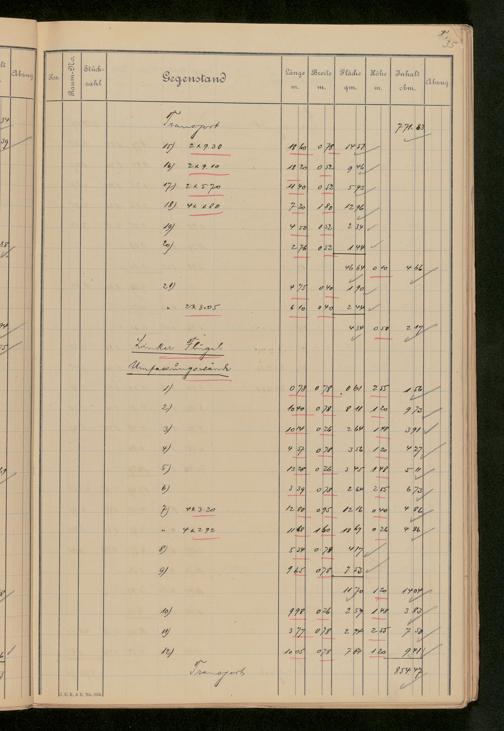 35
Raum-No.
Stück-zahl
Gegenstand
Länge m.
Breite m.
Fläche qm.
Höhe m.
Inhalt cbm.
Abzug
Transport 771.63
15) 2 x 9.30 18 60 0 78 14 51
16) 2 x 9.10 18 20 0 52 9 46
17) 2 x 5.70 11 40 0 52 5 93
18) 4 x 1.80 7 20 1 80 12 96
19) 4 50 0 52 2 34
20) 2 76 0 52 1 44
46 64 0 10 4 66
21) 4 75 0 40 1 90
" 2 x 3.05 6 10 0 40 2 44
4 34 0 50 2 17
Linker Flügel
Umfassungswände
1) 0 78 0 78 0 61 2 55 1 56
2) 10 40 0 78 8 11 1 20 9 73
3) 10 14 0 26 2 64 1 48 3 91
4) 4 57 0 78 3 56 1 20 4 27
5) 0 26 3 45 1 48 5 11
6) 3 39 0 78 2 64 2 55 6 73
7) 4 x 3.20 12 80 0 95 12 16 0 40 4 86
" 4 x 2.92 11 68 1 60 18 69 0 26 4 86
8) 5 34 0 78 4 17
9) 9 65 0 78 7 53
11 70 1 20 14 04
10) 9 98 0 26 2 59 1 48 3 83
11) 3 77 0 78 2 94 2 55 7 50
12) 10 05 0 78 7 84 1 20 9 41
Transport 854.47